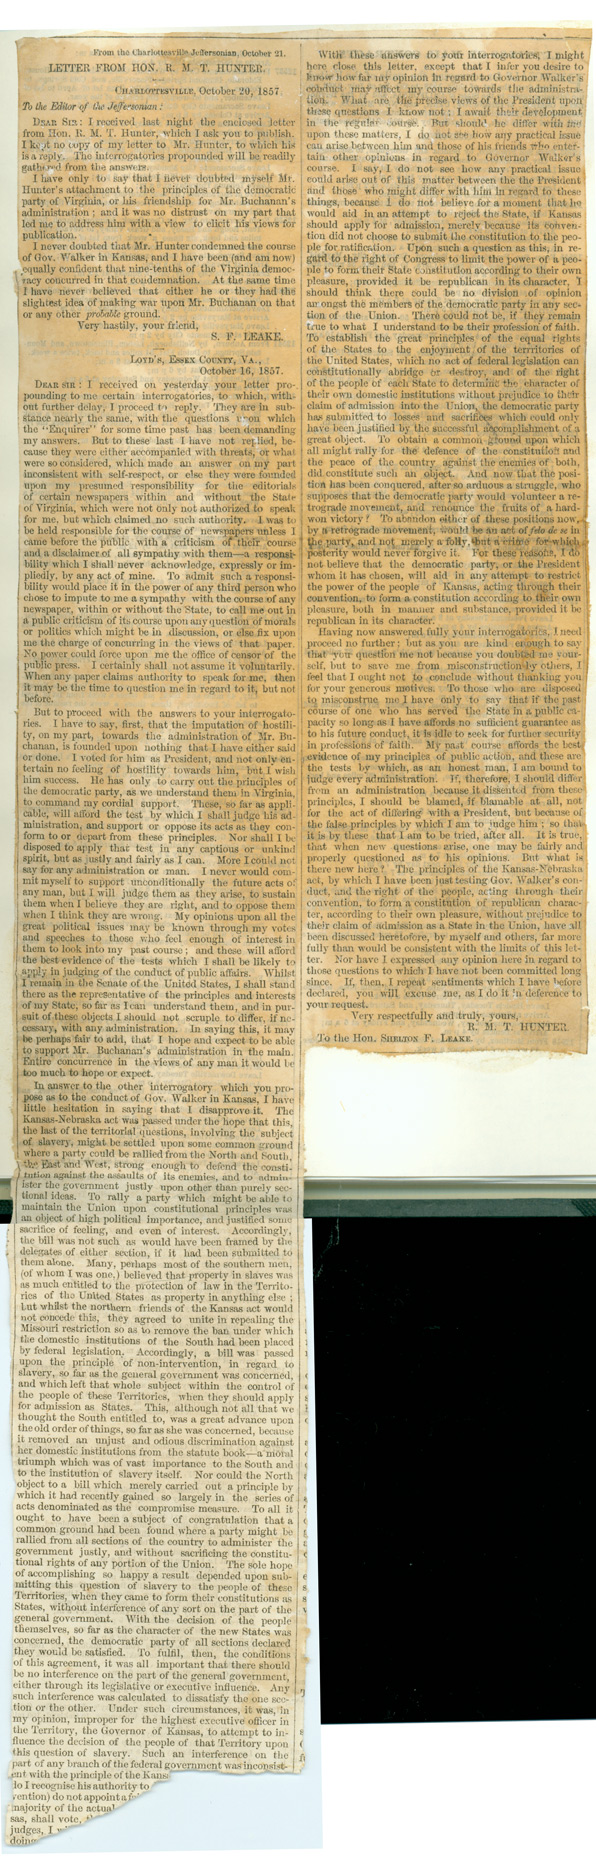 From the Charlottesville Jeffersonian, October 21.
LETTER FROM HON. R. M. T. HUNTER.
CHARLOTTESVILLE, October 20, 1857.
To the Editor of the Jeffersonian:
DEAR SIR: I received last night the enclosed letter
from Hon. R. M. T. Hunter, which I ask you to publish.
I kept no copy of my letter to Mr. Hunter, to which his
is a reply. The interrogatories propounded will be readily
gathered from the answers.
I have only to say that I never doubted myself Mr.
Hunter's attachment to the principles of the democratic
party of Virginia, or his friendship for Mr. Buchanan's
administration; and it was no distrust on my part that
led me to address him with a view to elicit his views for
publication.
I never doubted that Mr. Hunter condemned the course
of Gov. Walker in Kansas, and I have been (and am now)
equally confident that nine-tenths of the Virginia democ-
racy concurred in that condemnation. At the same time
I have never believed that either he or they had the
slightest idea of making war upon Mr. Buchanan on that
or any other probable ground.
Very hastily, your friend,
S. F. LEAKE.
LOYD'S, ESSEX COUNTY, VA.,
October 16, 1857.
DEAR SIR: I received on yesterday your letter pro-
pounding to me certain interrogatories, to which, with-
out further delay, I proceed to reply. They are in sub-
stance nearly the same, with the questions upon which
the "Enquirer" for some time past has been demanding
my answers. But to these last I have not replied, be-
cause they were either accompanied with threats, or what
were so considered, which made an answer on my part
inconsistent with self-respect, or else they were founded
upon my presumed responsibility for the editorials
of certain newspapers within and without the State
of Virginia, which were not only not authorized to speak
for me, but which claimed no such authority. I was to
be held responsible for the course of newspapers unless I
came before the public with a criticism of their course
and a disclaimer of all sympathy with them—a responsi-
bility which I shall never acknowledge, expressly or im-
pliedly, by any act of mine. To admit such a responsi-
bility would place it in the power of any third person who
chose to impute to me a sympathy with the course of any
newspaper, within or without the State, to call me out in
a public criticism of its course upon any question of morals
or politics which might be in discussion, or else fix upon
me the charge of concurring in the views of that paper.
No power could force upon me the office of censor of the
public press. I certainly shall not assume it voluntarily.
When any paper claims authority to speak for me, then
it may be the time to question me in regard to it, but not
before.
But to proceed with the answers to your interrogato-
ries. I have to say, first, that the imputation of hostili-
ty, on my part, towards the administration of Mr. Bu-
chanan, is founded upon nothing that I have either said
or done. I voted for him as President, and not only en-
tertain no feeling of hostility towards him, but I wish
him success. He has only to carry out the principles of
the democratic party, as we understand them in Virginia,
to command my cordial support. These, so far as appli-
cable, will afford the test by which I shall judge his ad-
ministration, and support or oppose its acts as they con-
form to or depart from these principles. Nor shall I be
disposed to apply that test in any captious or unkind
spirit, but as justly and fairly as I can. More I could not
say for any administration or man. I never would com-
mit myself to support unconditionally the future acts of
any man, but I will judge them as they arise, to sustain
them when I believe they are right, and to oppose them
when I think they are wrong. My opinions upon all the
great political issues may be known through my votes
and speeches to those who feel enough of interest in
them to look into my past course; and these will afford
the best evidence of the tests which I shall be likely to
apply in judging of the conduct of public affairs. Whilst
I remain in the Senate of the United States, I shall stand
there as the representative of the principles and interests
of my State, so far as I can understand them, and in pur-
suit of these objects I should not scruple to differ, if ne-
cessary, with any administration. In saying this, it may
be perhaps fair to add, that I hope and expect to be able
to support Mr. Buchanan's administration in the main.
Entire concurrence in the views of any man it would be
too much to hope or expect.
In answer to the other interrogatory which you pro-
pose as to the conduct of Gov. Walker in Kansas, I have
little hesitation in saying that I disapprove it. The
Kansas-Nebraska act was passed under the hope that this,
the last of the territorial questions, involving the subject
of slavery, might be settled upon some common ground
where a party could be rallied from the North and South,
the East and West, strong enough to defend the consti-
tution against the assaults of its enemies, and to admin-
ister the government justly upon other than purely sec-
tional ideas. To rally a party which might be able to
maintain the Union upon constitutional principles was
an object of high political importance, and justified some
sacrifice of feeling, and even of interest. Accordingly,
the bill was not such as would have been framed by the
delegates of either section, if it had been submitted to
them alone. Many, perhaps most of the southern men,
(of whom I was one,) believed that property in slaves was
as much entitled to the protection of law in the Territo-
ries of the United States as property in anything else;
but whilst the northern friends of the Kansas act would
not concede this, they agreed to unite in repealing the
Missouri restriction so as to remove the ban under which
the domestic institutions of the South had been placed
by federal legislation. Accordingly, a bill was passed
upon the principle of non-intervention, in regard to
slavery, so far as the general government was concerned,
and which left that whole subject within the control of
the people of these Territories, when they should apply
for admission as States. This, although not all that we
thought the South entitled to, was a great advance upon
the old order of things, so far as she was concerned, because
it removed an unjust and odious discrimination against
her domestic institutions from the statute book—a moral
triumph which was of vast importance to the South and
to the institution of slavery itself. Nor could the North
object to a bill which merely carried out a principle by
which it had recently gained so largely in the series of
acts denominated as the compromise measure. To all it
ought to have been a subject of congratulation that a
common ground had been found where a party might be
rallied from all sections of the country to administer the
government justly, and without sacrificing the constitu-
tional rights of any portion of the Union. The sole hope
of accomplishing so happy a result depended upon sub-
mitting this question of slavery to the people of these
Territories, when they came to form their constitutions as
States, without interference of any sort on the part of the
general government. With the decision of the people
themselves, so far as the character of the new States was
concerned, the democratic party of all sections declared
they would be satisfied. To fulfil, then, the conditions
of this agreement, it was all important that there should
be no interference on the part of the general government,
either through its legislative or executive influence. Any
such interference was calculated to dissatisfy the one sec-
tion or the other. Under such circumstances, it was, in
my opinion, improper for the highest executive officer in
the Territory, the Governor of Kansas, to attempt to in-
fluence the decision of the people of that Territory upon
this question of slavery. Such an interference on the
part of any branch of the federal government was inconsist-
ent with the principle of the Kans
do I recognise his authority to
vention) do not appoint a
majority of the actual
sas, shall vote,
judges, I
doing
With these answers to your interrogatories, I might
here close this letter, except that I infer you desire to
know how far my opinion in regard to Governor Walker's
conduct may affect my course towards the administra-
tion. What are the precise views of the President upon
these questions I know not; I await their development
in the regular course. But should he differ with me
upon these matters, I do not see how any practical issue
can arise between him and those of his friends who enter-
tain other opinions in regard to Governor Walker's
course. I say, I do not see how any practical issue
could arise out of this matter between the the President
and those who might differ with him in regard to these
things, because I do not believe for a moment that he
would aid in an attempt to reject the State, if Kansas
should apply for admission, merely because its conven-
tion did not choose to submit the constitution to the peo-
ple for ratification. Upon such a question as this, in re-
gard to the right of Congress to limit the power of a peo-
ple to form their State constitution according to their own
pleasure, provided it be republican in its character, I
should think there could be no division of opinion
amongst the members of the democratic party in any sec-
tion of the Union. There could not be, if they remain
true to what I understand to be their profession of faith.
To establish the great principles of the equal rights
of the States to the enjoyment of the territories of
the United States, which no act of federal legislation can
constitutionally abridge or destroy, and of the right
of the people of each State to determine the character of
their own domestic institutions without prejudice to their
claim of admission into the Union, the democratic party
has submitted to losses and sacrifices which could only
have been justified by the successful accomplishment of a
great object. To obtain a common ground upon which
all might rally for the defence of the constitution, and
the peace of the country against the enemies of both,
did constitute such an object. And now that the posi-
tion has been conquered, after so arduous a struggle, who
supposes that the democratic party would volunteer a re-
trograde movement, and renounce the fruits of a hard-
won victory? To abandon either of these positions now,
by a retrograde movement, would be an act of felo de se in
the party, and not merely a folly, but a crime for which
posterity would never forgive it. For these reasons, I do
not believe that the democratic party, or the President
whom it has chosen, will aid in any attempt to restrict
the power of the people of Kansas, acting through their
convention, to form a constitution according to their own
pleasure, both in manner and substance, provided it be
republican in its character.
Having now answered fully your interrogatories, I need
proceed no further; but as you are kind enough to say
that you question me not because you doubted me your-
self, but to save me from misconstruction by others, I
feel that I ought not to conclude without thanking you
for your generous motives. To those who are disposed
to misconstrue me I have only to say that if the past
course of one who has served the State in a public ca-
pacity so long as I have affords no sufficient guarantee as
to his future conduct, it is idle to seek for further security
in professions of faith. My past course affords the best
evidence of my principles of action, and these are
the tests by which, as an honest man, I am bound to
judge every administration. If, therefore, I should differ
from an administration because it dissented from these
principles, I should be blamed, if blamable at all, not
for the act of differing with a President, but because of
the false principles by which I am to judge him; so that
it is by these that I am to be tried, after all. It is true,
that when new questions arise, one may be fairly and
properly questioned as to his opinions. But what is
there new here? The principles of the Kansas-Nebraska
act, by which I have been just testing Gov. Walker's con-
duct, and the right of the people, acting through their
convention, to form a constitution of republican charac-
ter, according to their own pleasure, without prejudice to
their claim of admission as a State in the Union, have all
been discussed heretofore, by myself and others, far more
fully than would be consistent with the limits of this let-
ter. Nor have I expressed any opinion here in regard to
those questions to which I have not been committed long
since. If, then, I repeat sentiments which I have before
declared, you will excuse me, as I do it in deference to
your request.
Very respectfully and truly, yours,
R. M. T. HUNTER.
To the Hon. SHELTON F. LEAKE.